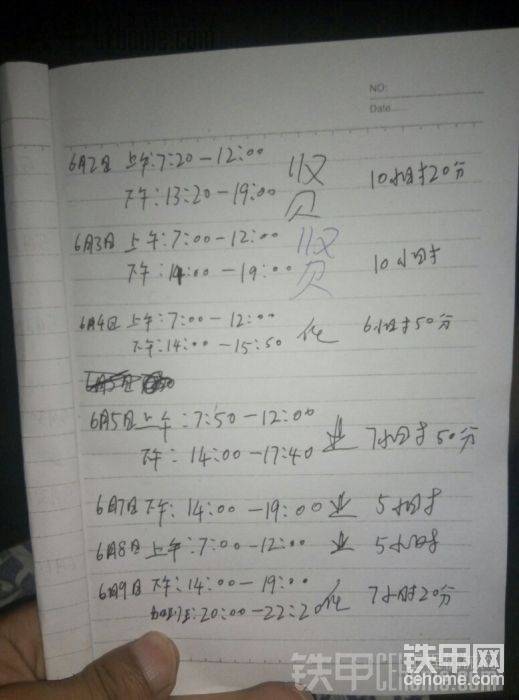 NO:
Date
6月2日 上午:7:20-12:00
下午:13:20-19:00
10小时20分
6月3日 上午:7:00-12:00
下午:14:00-19:00
10小时
6月4日 上午:7:00-12:00
下午:14:00-15:50
化 6小时50分
6月5日上午:7:50-12:00
下午:14:00-17:40 业 7小时50分
6月7日下午:14:00-19:00业 5小时
6月8日上午:7:00-12:00 业 5小时
6月9日 下午:14:00-19:00
加班:20:00-22:20化 7小时20分
铁甲网
cehome.com